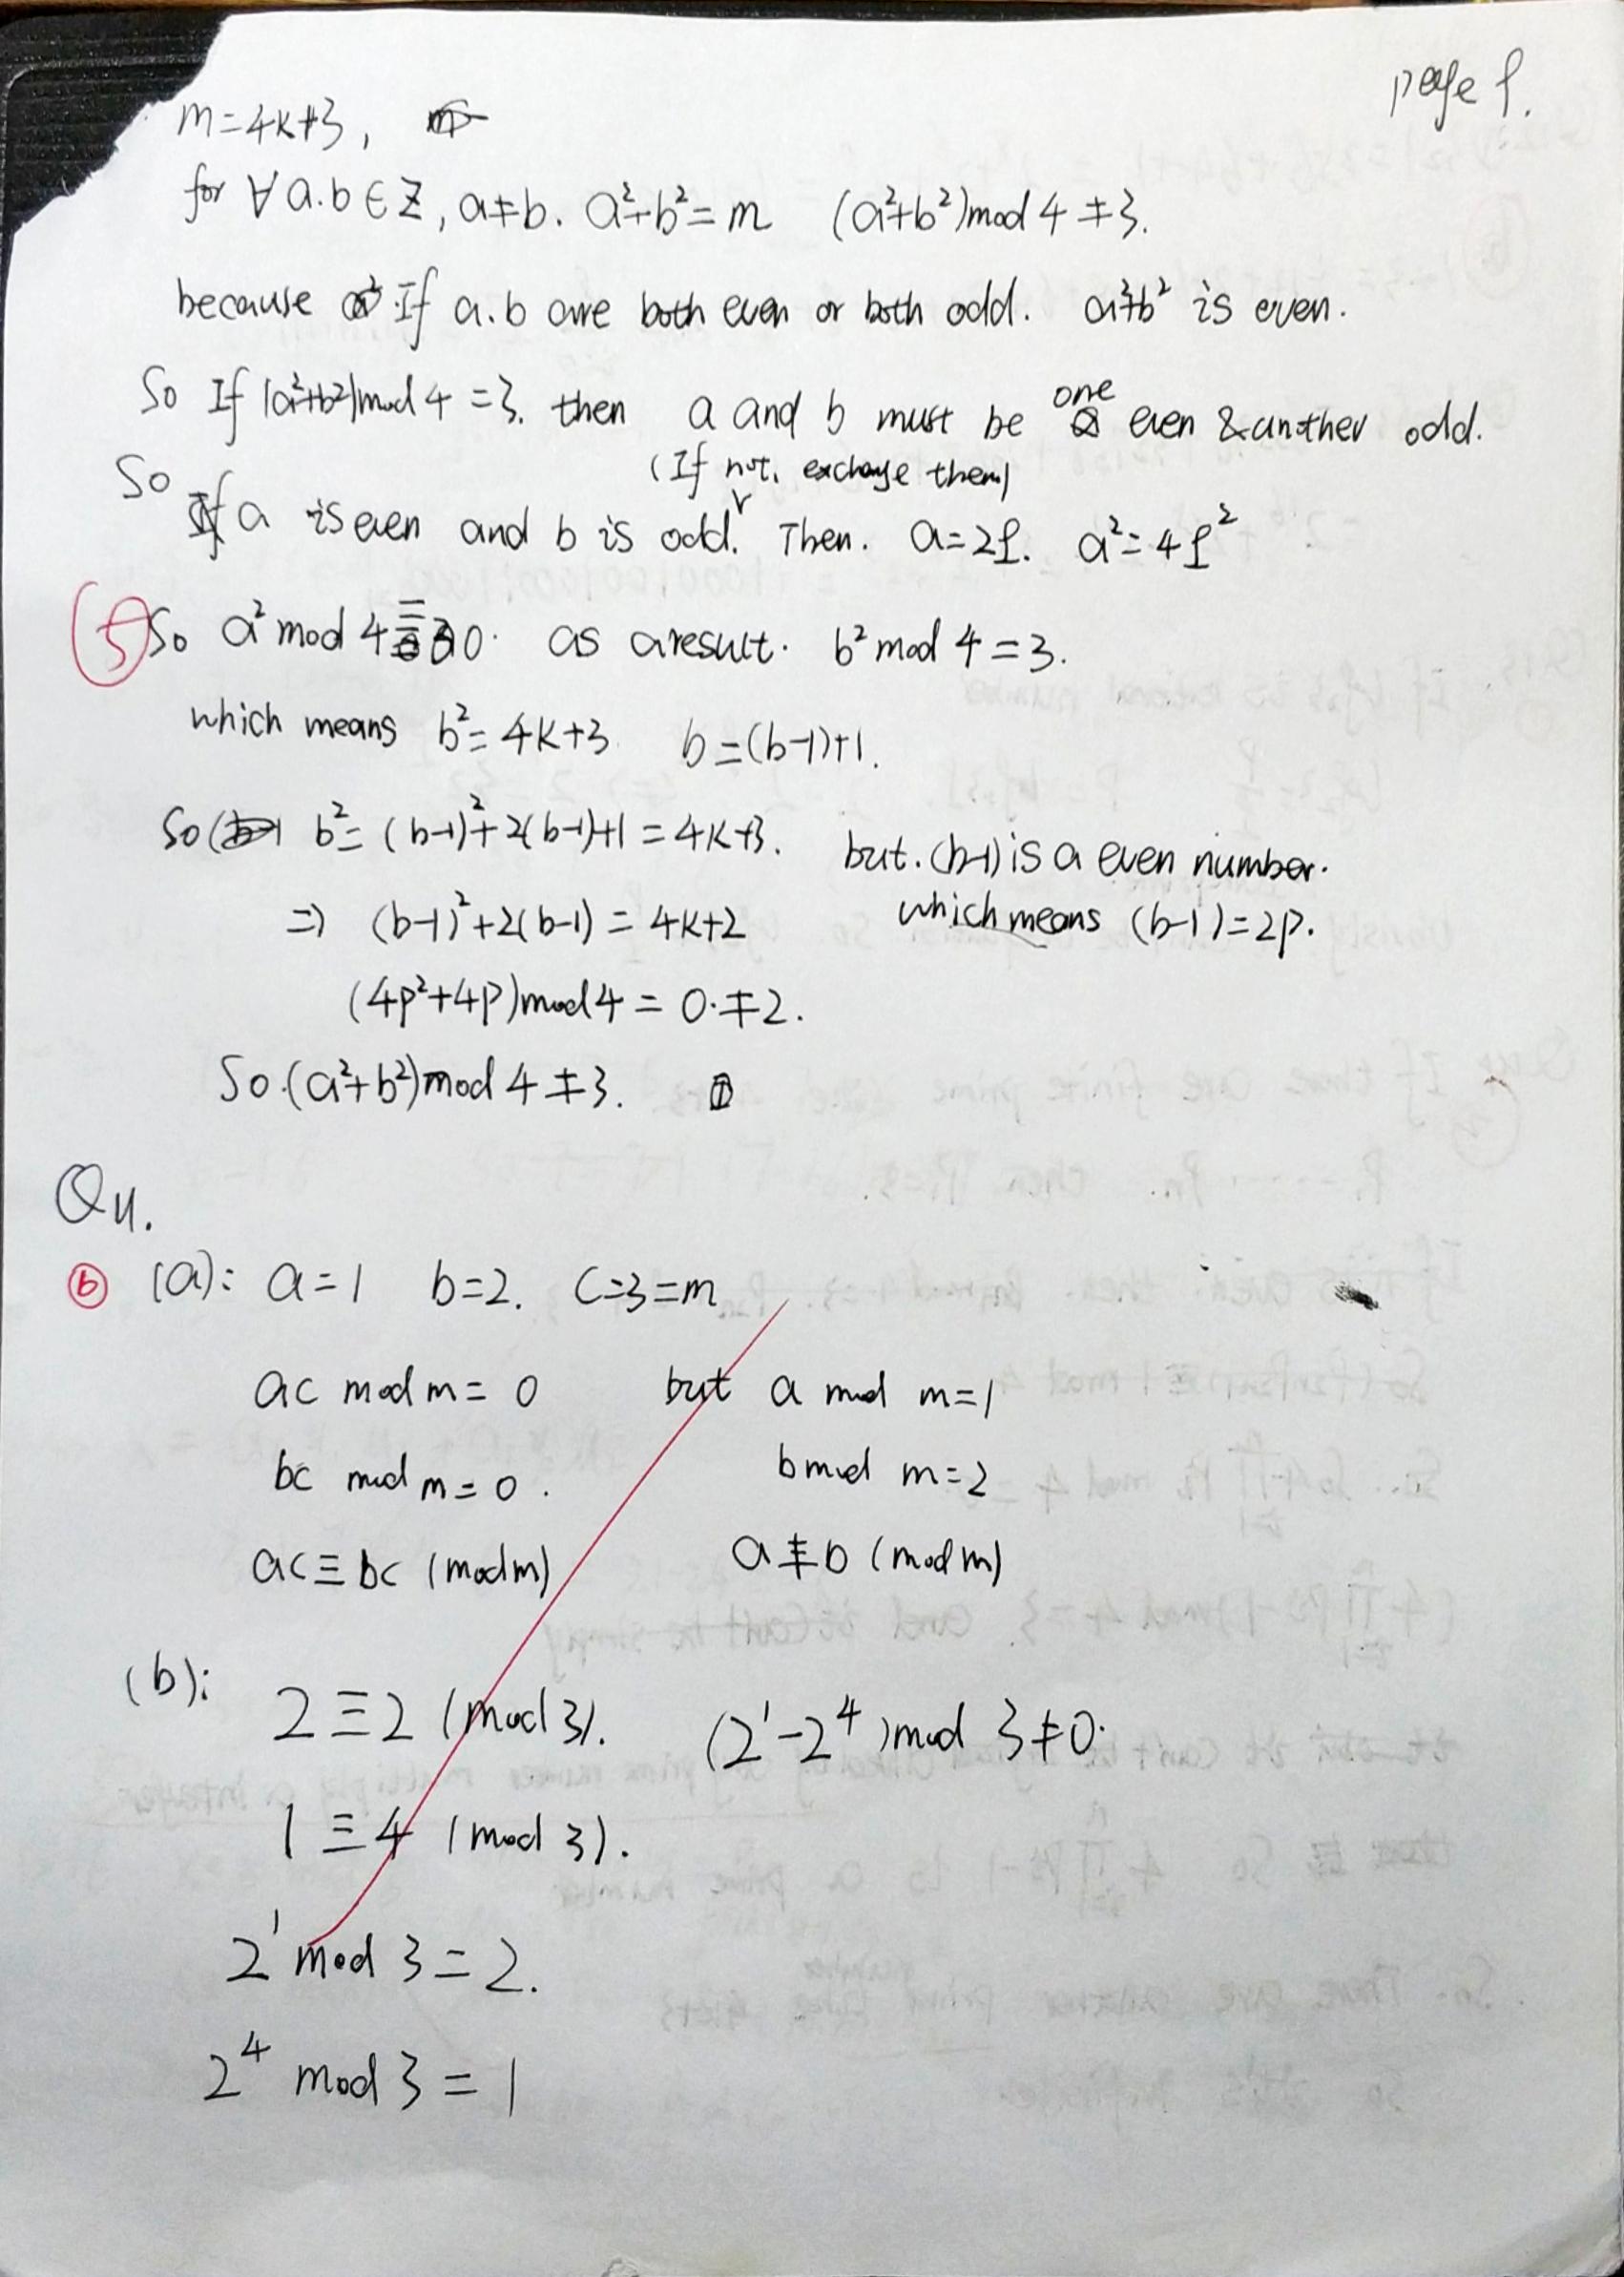 page 1.
m=4k+3,
for ∀ a.b ∈ Z, a≠b. a²+b²=m (a²+b²)mod 4 ≠3.
because If a.b are both even or both odd. a²+b² is even.
So If (a²+b²)mod 4 =3. then a and b must be one even & another odd.
(If not, exchange them)
So If a is even and b is odd. Then. a=2l. a²=4l²
5 So a² mod 4 = 0. as aresult. b² mod 4 =3.
which means b²= 4k+3 b=(b-1)+1.
So b²= (b-1)²+2(b-1)+1 = 4k+3. but. (b-1) is a even number.
⇒ (b-1)²+2(b-1) = 4k+2 which means (b-1)=2p.
(4p²+4p)mod4 = 0.≠2.
So.(a²+b²)mod 4 ≠3.
Q4.
6 (a): a=1 b=2. C=3=m
ac mod m= 0 but a mod m=1
bc mod m=0. b mod m=2
ac≡bc (mod m) a≢b (mod m)
(b):
2≡2 (mod 3). (2¹-2⁴)mod 3≠0.
1≡4 (mod 3).
2¹ mod 3 =2.
2⁴ mod 3 = 1